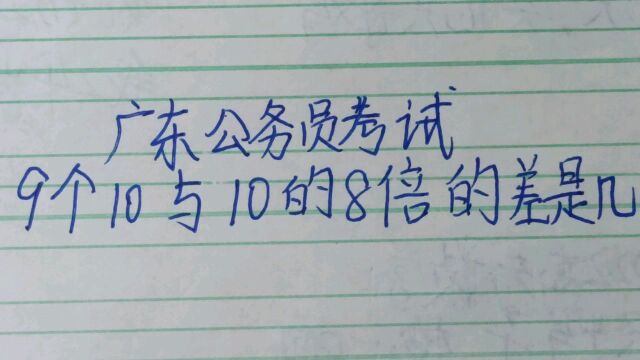 广东公务员考试
9个10与10的8倍的差是几